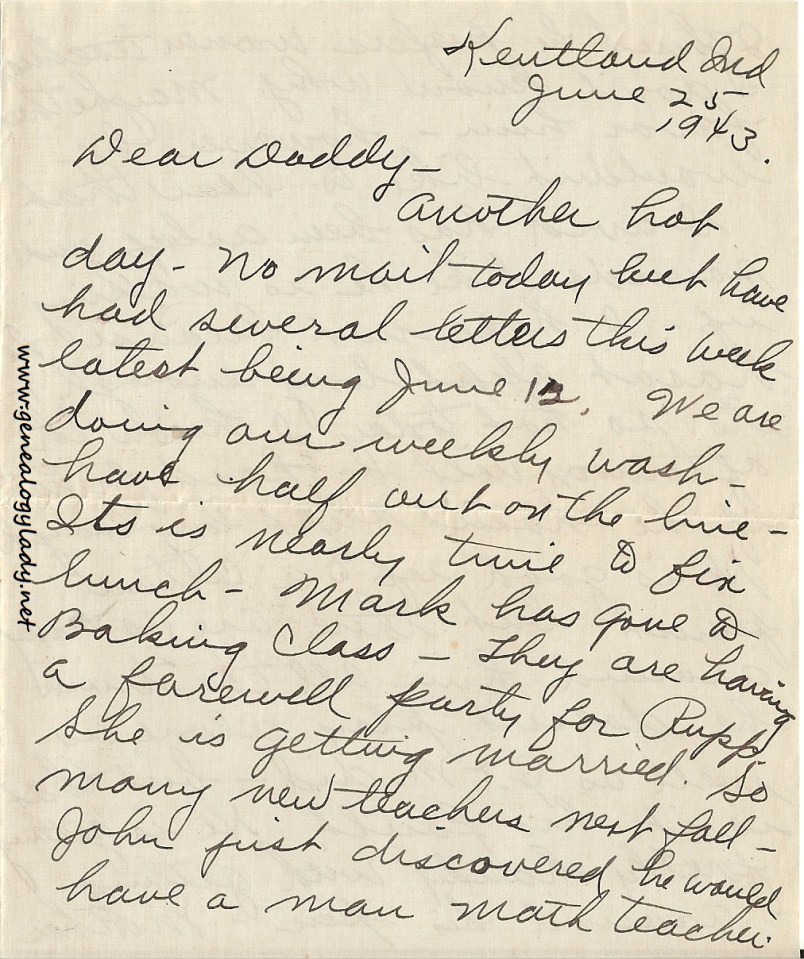 Kentland Ind
June 25
1943.
Dear Daddy—
Another hot
day - No mail today but have
had several letters this week
latest being June 12. We are
doing our weekly wash -
have half out on the line -
Its is nearly time to fix
lunch - Mark has gone to
Baking Class - They are having
a farewell party for Rupp
She is getting married. So
many new teachers next fall -
John just discovered he would
have a man math teacher.
www.genealogylady.net